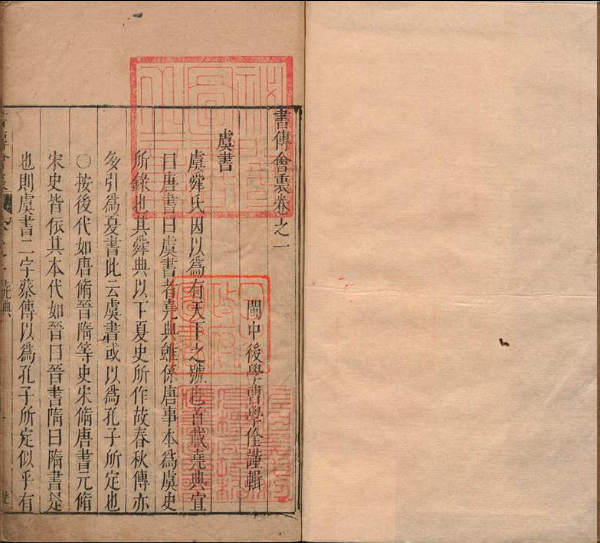 書傳會衷卷之一
閩中後學曹學佺謹輯
虞書
虞舜氏因以爲有天下之號也首載堯典宜
曰唐書曰虞書者堯典雖係唐事本爲虞史
所錄也其舜典以下夏史所作故春秋傳亦
多引爲夏書此云虞書或以爲孔子所定也
○按後代如唐脩晉隋等史宋脩唐書元脩
宋史皆依其本代如晉曰晉書隋曰隋書是
也則虞書二字蔡傳以爲孔子所定似乎有
堯典